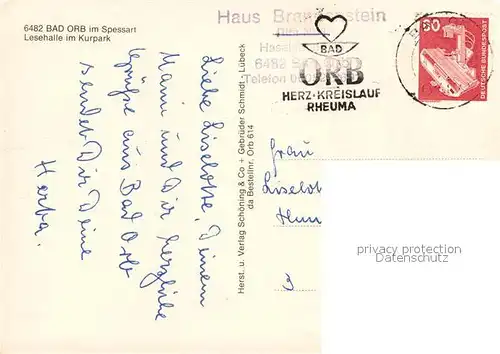 6482 BAD ORB im Spessart
Lesehalle im Kurpark
Liebe Liselotte, Deinem
Mann und Dir herzliche
Grüße aus Bad Orb
sendet Dir Deine
Herta.
Herst. u. Verlag Schöning & Co + Gebrüder Schmidt, Lübeck
da Bestellnr. Orb 614
Haus Brandenstein
6482
Telefon
BAD
ORB
HERZ·KREISLAUF
RHEUMA
60
DEUTSCHE BUNDESPOST
Frau
3
privacy protection
Datenschutz